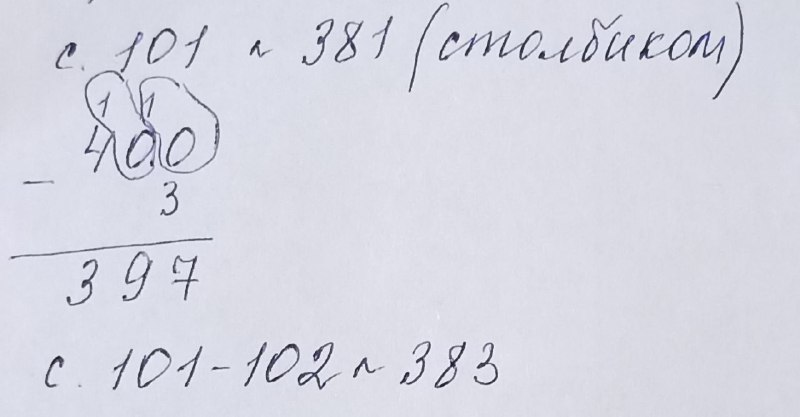 с. 101 ~ 381 (столбиком)
1 1
400
-
3
397
с. 101-102 ~ 383